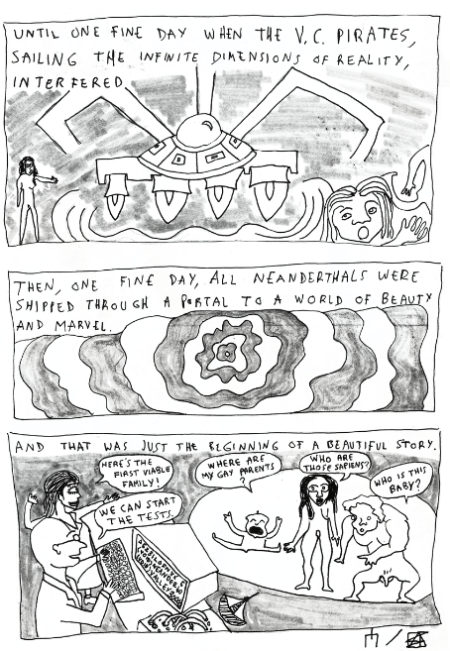 UNTIL ONE FINE DAY WHEN THE V.C. PIRATES,
SAILING THE INFINITE DIMENSIONS OF REALITY,
INTERFERED
THEN, ONE FINE DAY, ALL NEANDERTHALS WERE
SHIPPED THROUGH A PORTAL TO A WORLD OF BEAUTY
AND MARVEL.
AND THAT WAS JUST THE BEGINNING OF A BEAUTIFUL STORY.
HERE'S THE
FIRST VIABLE
FAMILY!
WE CAN START
THE TESTS.
WHERE ARE
MY GAY PARENTS
?
WHO ARE
THOSE SAPIENS?
WHO IS THIS
BABY?